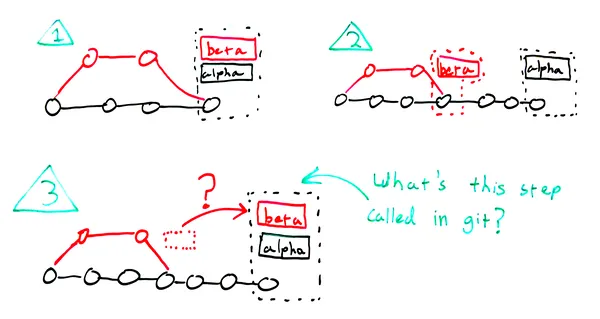 1
beta
alpha
2
beta
alpha
3
?
beta
alpha
What's this step
called in git?